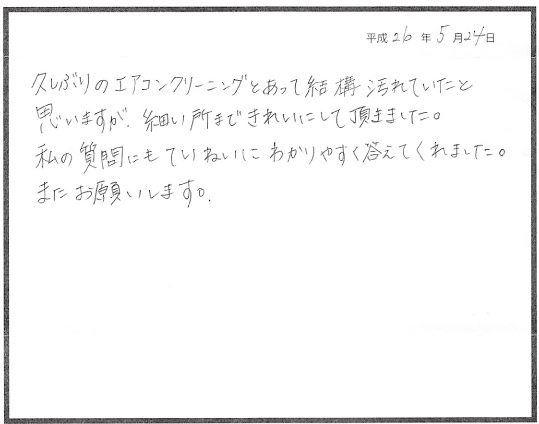 平成 26 年 5 月 24 日
久しぶりのエアコンクリーニングとあって結構汚れていたと
思いますが、細い所まできれいにして頂きました。
私の質問にもていねいにわかりやすく答えてくれました。
またお願いします。